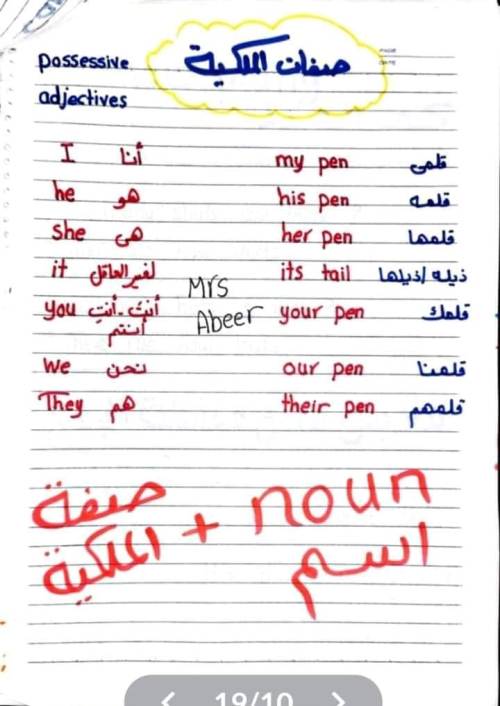 possessive
adjectives
صفات الملكية
I أنا my pen قلمى
he هو his pen قلمه
she هى her pen قلمها
it لغير العاقل its tail ذيله / ذيلها
you أنتَ - أنتِ your pen قلمك
أنتم
Mrs
Abeer
we نحن our pen قلمنا
They هم their pen قلمهم
صفة
الملكية + noun
اسم
19/10